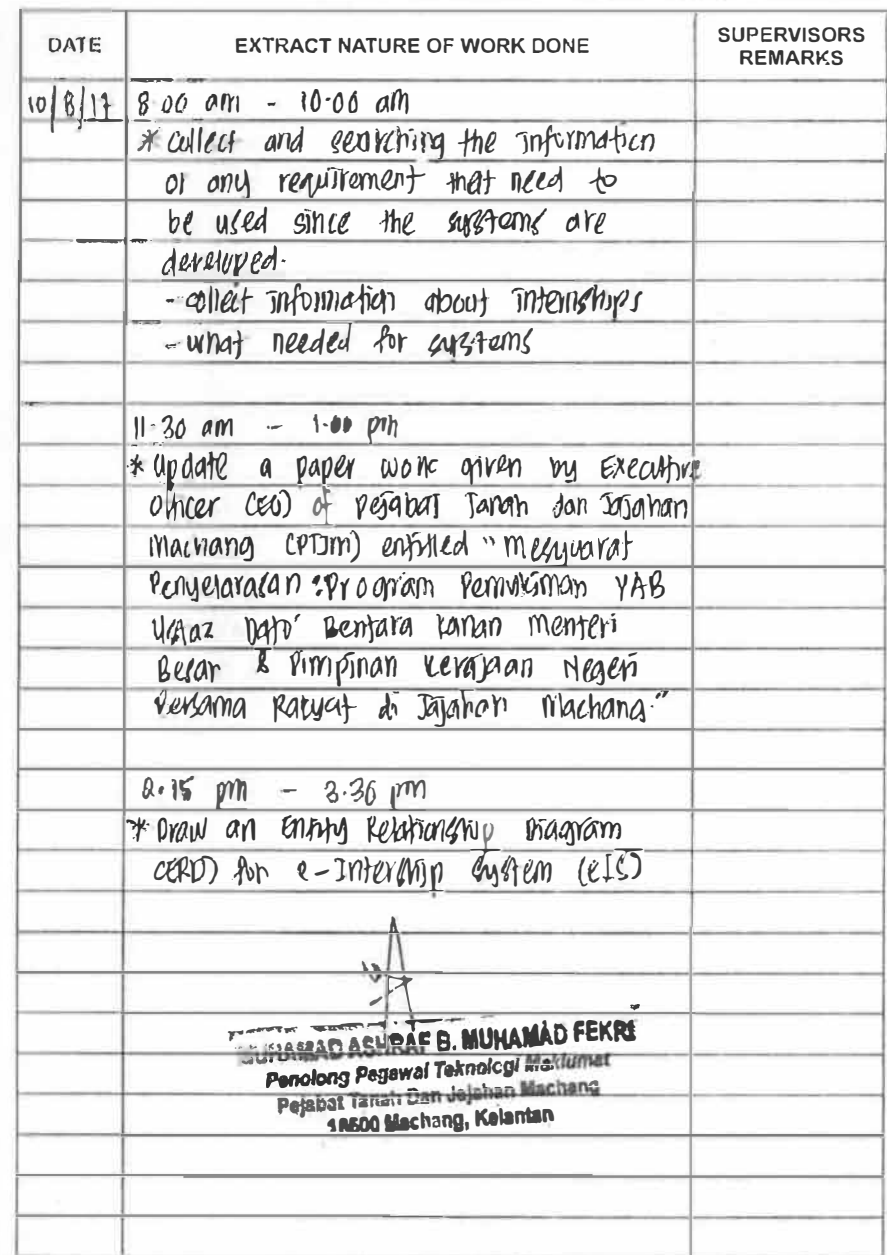 DATE EXTRACT NATURE OF WORK DONE SUPERVISORS REMARKS
10/8/17 8.00 am - 10.00 am
* Collect and searching the information
or any requirement that need to
be used since the systems are
developed.
- collect information about internships
- what needed for systems
11.30 am - 1.00 pm
* Update a paper work given by Executive
Officer (EO) of Pejabat Tanah dan Jajahan
Machang (PTJM) entitled "Mesyuarat
Penyelarasan : Program Pemukiman YAB
Ustaz Dato' Bentara Kanan Menteri
Besar & Pimpinan Kerajaan Negeri
Bersama Rakyat di Jajahan Machang."
2.15 pm - 3.30 pm
* Draw an Entity Relationship Diagram
(ERD) for e-Internship System (eIS)
MUHAMAD ASHRAF B. MUHAMAD FEKRI
Penolong Pegawai Teknologi Maklumat
Pejabat Tanah Dan Jajahan Machang
18500 Machang, Kelantan